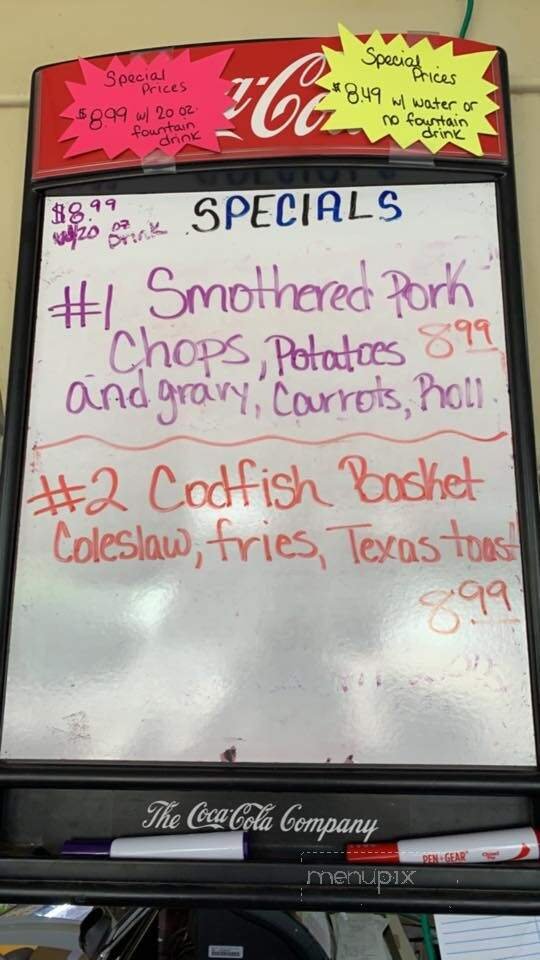 Special
Prices
$8.99 w/ 20 oz.
fountain
drink
Special
Prices
$8.49 w/ water or
no fountain
drink
$8.99
w/20 oz
Drink
SPECIALS
#1 Smothered Pork
Chops, Potatoes 8.99
and gravy, Carrots, Roll
#2 Codfish Basket
Coleslaw, fries, Texas toast
8.99
The Coca-Cola Company
PEN+GEAR
menupix